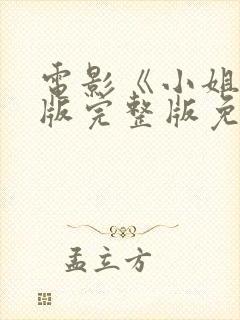 電影《小姐
版完整版免
孟立方